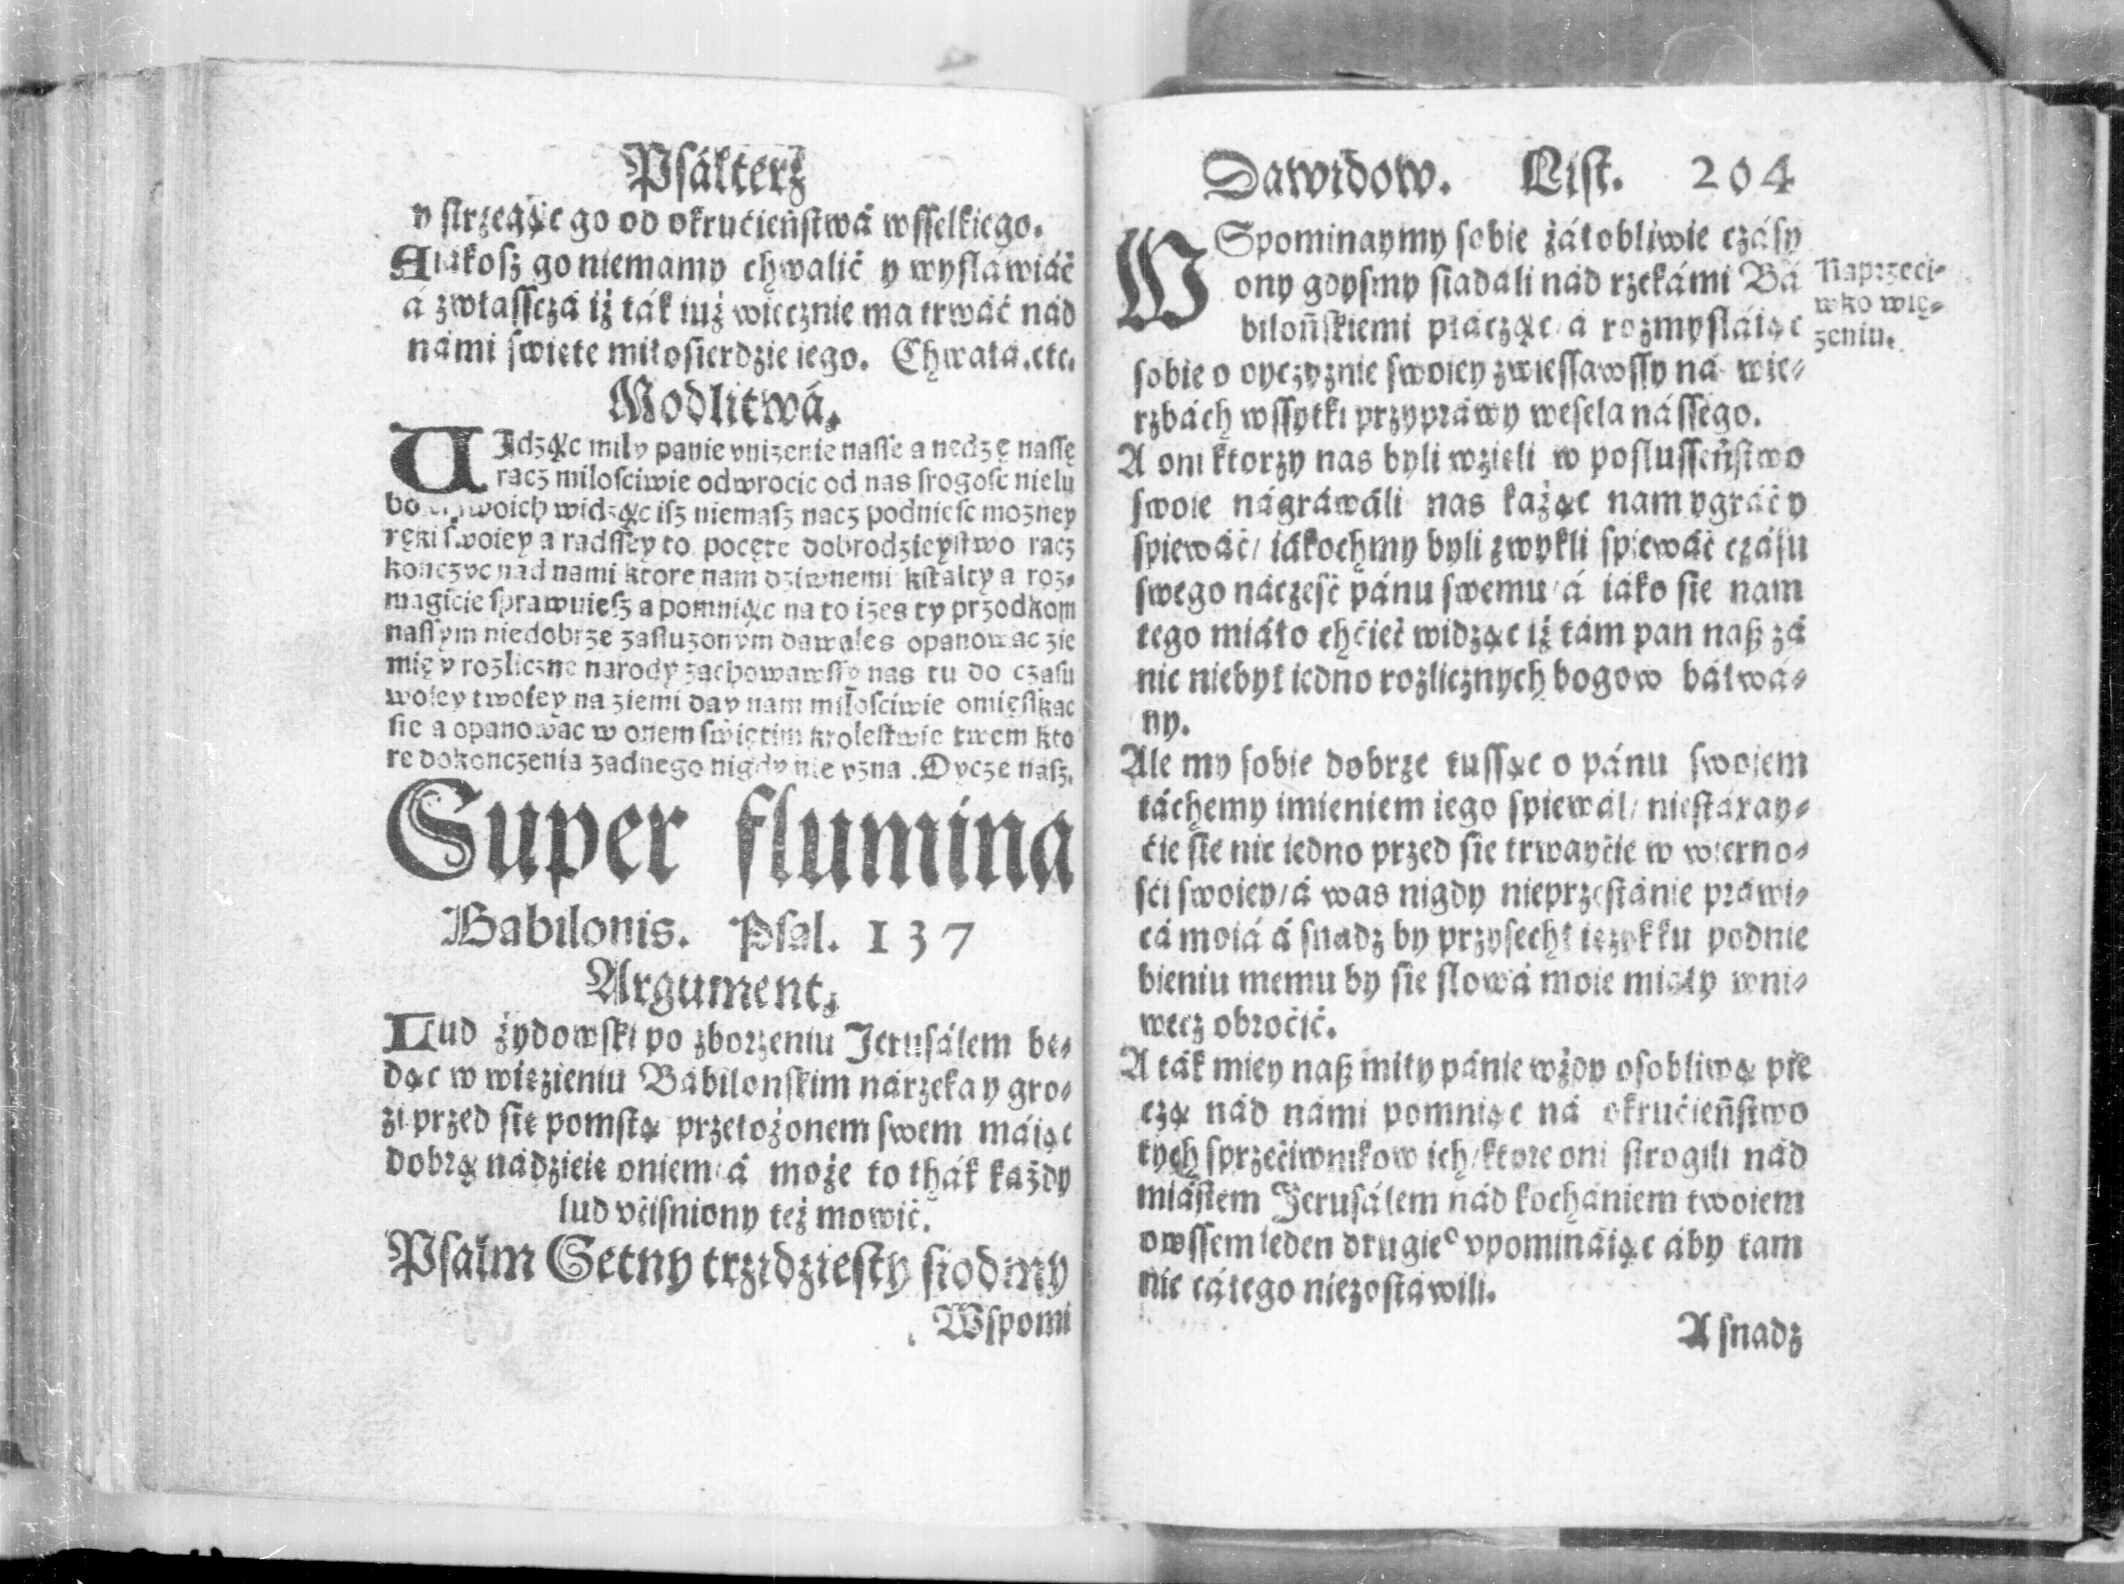 Psałterz
y strzegąc go od okrucieństwá wsselkiego.
A iákosz go niemamy chwalić y wysláwiáć
á zwłasscżá iż ták iuż wiecznie ma trwáć nád
námi święte miłosierdzie iego. Chwałá.etc.
Modlitwá.
UJdząc mily panie vnizenie nasse a nędzę nassę
racz milosciwie odwrocic od nas srogosc nielu
twoich widząc isz niemasz nacz podniesc mozney
ręki swoiey a radssey to poczęte dobrodzieystwo racz
konczyc nad nami ktore nam dziwnemi kstalty a roz-
magicie sprawuiesz a pomniąc na to izes ty przodkom
nassym niedobrze zasluzonym dawales opanowac zie
mię y rozliczne narody zachowawssy nas tu do czasu
woley twoiey na ziemi day nam milosciwie omięskac
sie a opanowac w onem swiętim krolestwie twem kto
re dokonczenia zadnego nigdy nie vzna .Oycze nasz.
Super flumina
Babilonis. Psal. 137
Argument.
Lud żydowski po zborzeniu Jerusálem bę-
dąc w więzieniu Bábilonskim nárzeka y gro-
zi przed się pomstą przełożonem swem máiąc
dobrą nádzieię oniem/á może to thák każdy
lud vciśniony też mowić.
Psalm Setny trzidziesty siodmy
Wspomi
Dawidow. List. 204
WSpominaymy sobie żáłobliwie cżásy
ony gdysmy siadali nád rzekámi Bá
bilońskiemi płácżąc/á rozmysláiąc
sobie o oycżyznie swoiey zwiessawssy ná wie-
rzbách wssytki przypráwy wesela nássego.
A oni ktorzy nas byli wzięli w poslusseństwo
swoie nágráwáli nas każąc nam ygráć y
spiewáć/ iákochmy byli zwykli spiewáć cżásu
swego nácześć pánu swemu/á iáko sie nam
tego miáło chcieć widząc iż tám pan naß zá
nic niebył iedno rozlicznych bogow báłwá-
ny.
Ale my sobie dobrze tussąc o pánu swoiem
táchemy imieniem iego spiewál/ niestáray-
cie sie nic iedno przed się trwaycie w wierno-
ści swoiey/á was nigdy nieprzestánie práwi-
cá moiá á snadz by przysechł ięzyk ku podnie
bieniu memu by sie slowá moie miáły wni-
wecz obroćić.
A ták miey naß miły pánie wżdy osobliwą pie
cżą nád námi pomniąc ná okrucieństwo
tych sprzeciwnikow ich/ktore oni strogili nád
miástem Jerusálem nád kochániem twoiem
owssem ieden drugieº vpomináiąc áby tam
nic cáłego niezostáwili.
A snadz
Naprzeci-
wko wię-
zeniu.